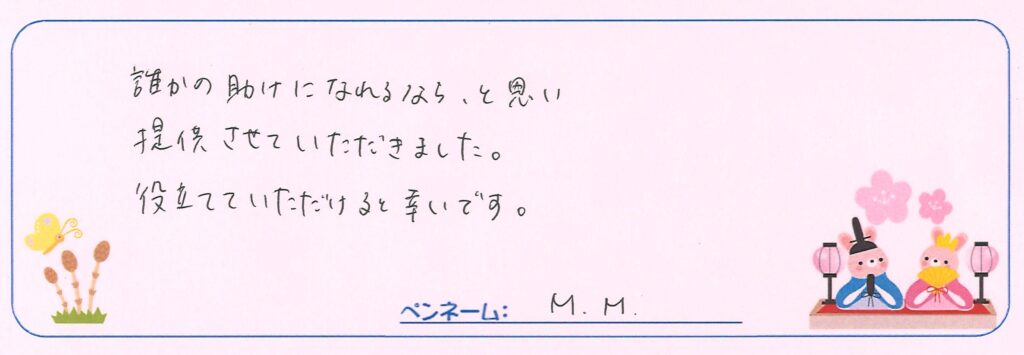 誰かの助けになれるなら、と思い
提供させていただきました。
役立てていただけると幸いです。
ペンネーム: M. M.